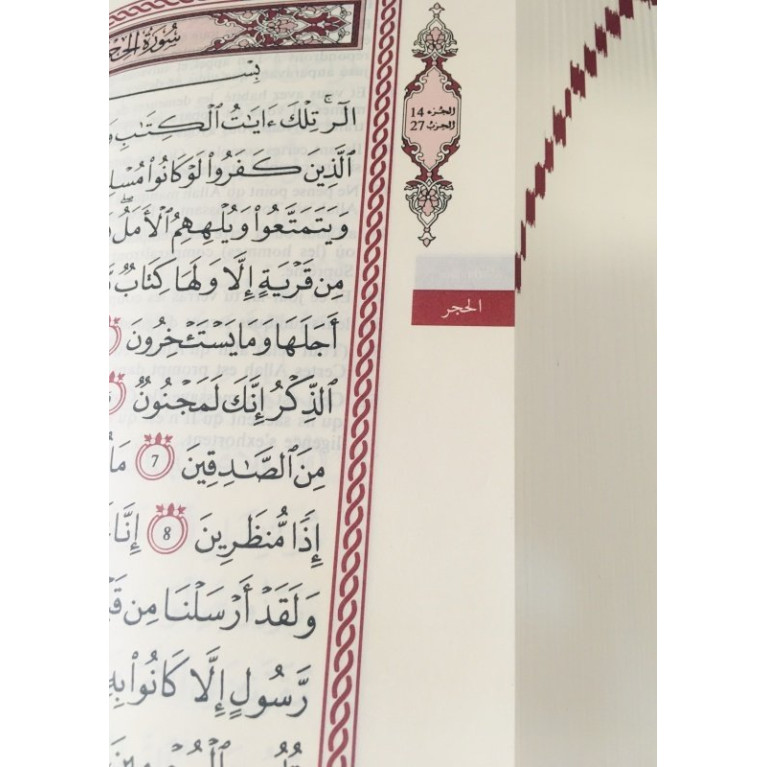 سُورَةُ الحِجْ
بِسْ
الٓرۚ تِلْكَ ءَايَٰتُ ٱلْكِتَٰبِ
ٱلَّذِينَ كَفَرُوا۟ لَوْ كَانُوا۟ مُسْلِ
وَيَتَمَتَّعُوا۟ وَيُلْهِهِمُ ٱلْأَمَلُۖ
مِن قَرْيَةٍ إِلَّا وَلَهَا كِتَابٌ
أَجَلَهَا وَمَا يَسْتَـْٔخِرُونَ
ٱلذِّكْرُ إِنَّكَ لَمَجْنُونٌ
مِنَ ٱلصَّٰدِقِينَ 7 مَا
إِذًا مُّنظَرِينَ 8 إِنَّا
وَلَقَدْ أَرْسَلْنَا مِن قَ
رَّسُولٍ إِلَّا كَانُوا۟ بِهِ
الجزء 14
الحزب 27
الحجر